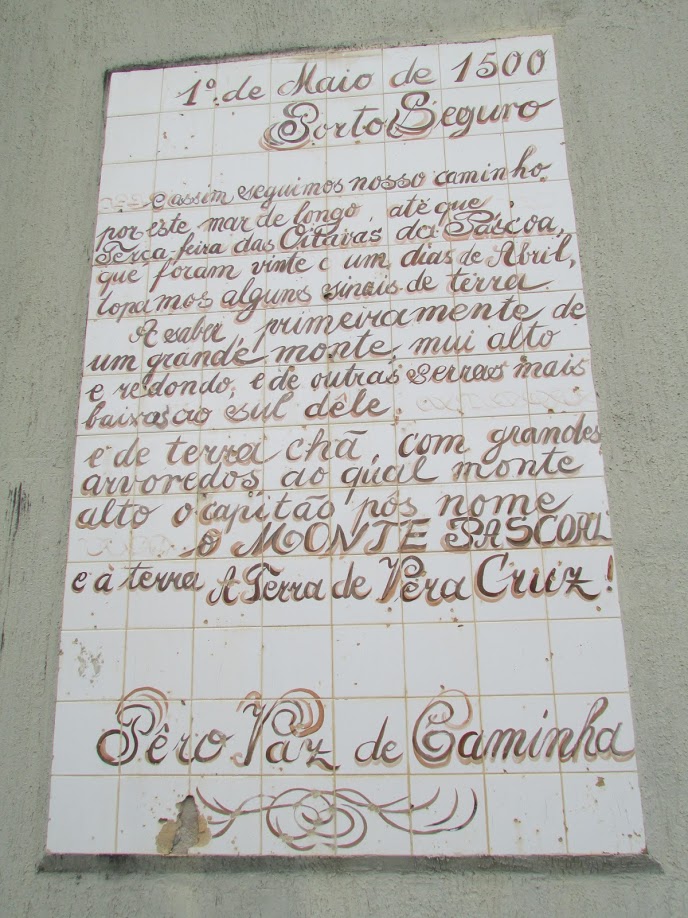 1º de Maio de 1500
Porto Seguro
e assim seguimos nosso caminho
por este mar de longo, até que,
Terça-feira das Oitavas da Páscoa,
que foram vinte e um dias de Abril,
topamos alguns sinais de terra.
A saber, primeiramente de
um grande monte, mui alto
e redondo, e de outras serras mais
baixas ao sul dêle,
e de terra chã, com grandes
arvoredos, ao qual monte
alto o capitão pôs nome
O MONTE PASCOAL
e à terra A Terra de Vera Cruz!
Pêro Vaz de Caminha